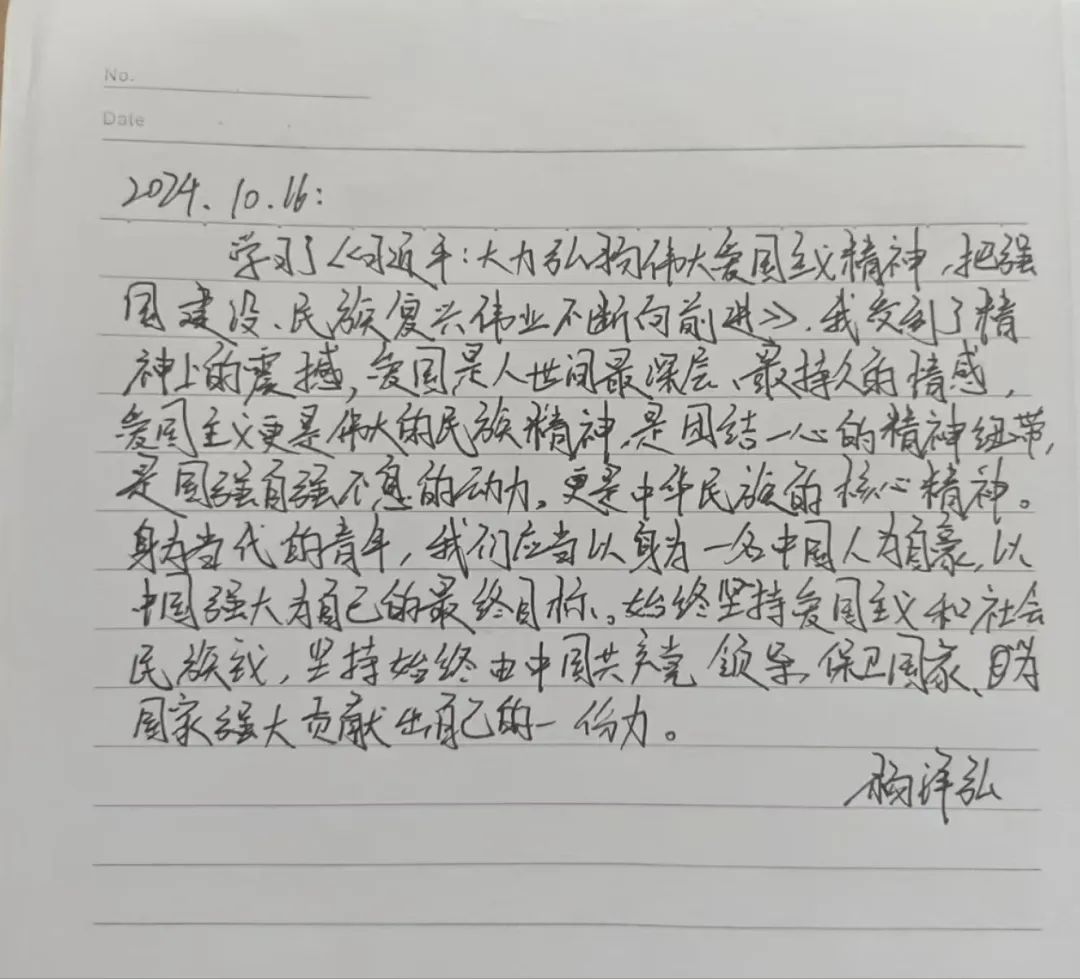 No.
Date
2024.10.16:
学习了《习近平:大力弘扬伟大爱国主义精神,把强
国建设、民族复兴伟业不断向前进》,我受到了精
神上的震撼,爱国是人世间最深层、最持久的情感,
爱国主义更是伟大的民族精神,是团结一心的精神纽带,
是国强自强不息的动力,更是中华民族的核心精神。
身为当代的青年,我们应当以身为一名中国人为自豪,以
中国强大为自己的最终目标。始终坚持爱国主义和社会
民族线,坚持始终由中国共产党领导,保卫国家、为
国家强大贡献出自己的一份力。
杨洋弘